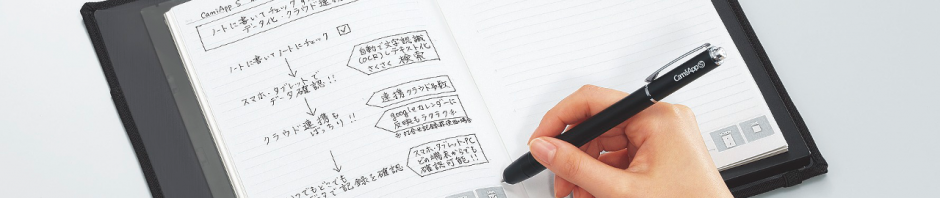 CamiApp S
ノートに書いてチェックす
データ化・クラウド連携
ノートに書いてノートにチェック
自動で文字認識
(OCR)しテキスト化
さくさく検索
スマホ・タブレットで
データ確認!!
連携クラウド多数
googleカレンダーに
反映もラクラクチ
クラウド連携も
ばっちり!!
スマホ・タブレット・PC
どの端末からでも
確認可能!!
いつでもどこでも
データで記録を確認
CamiApp S